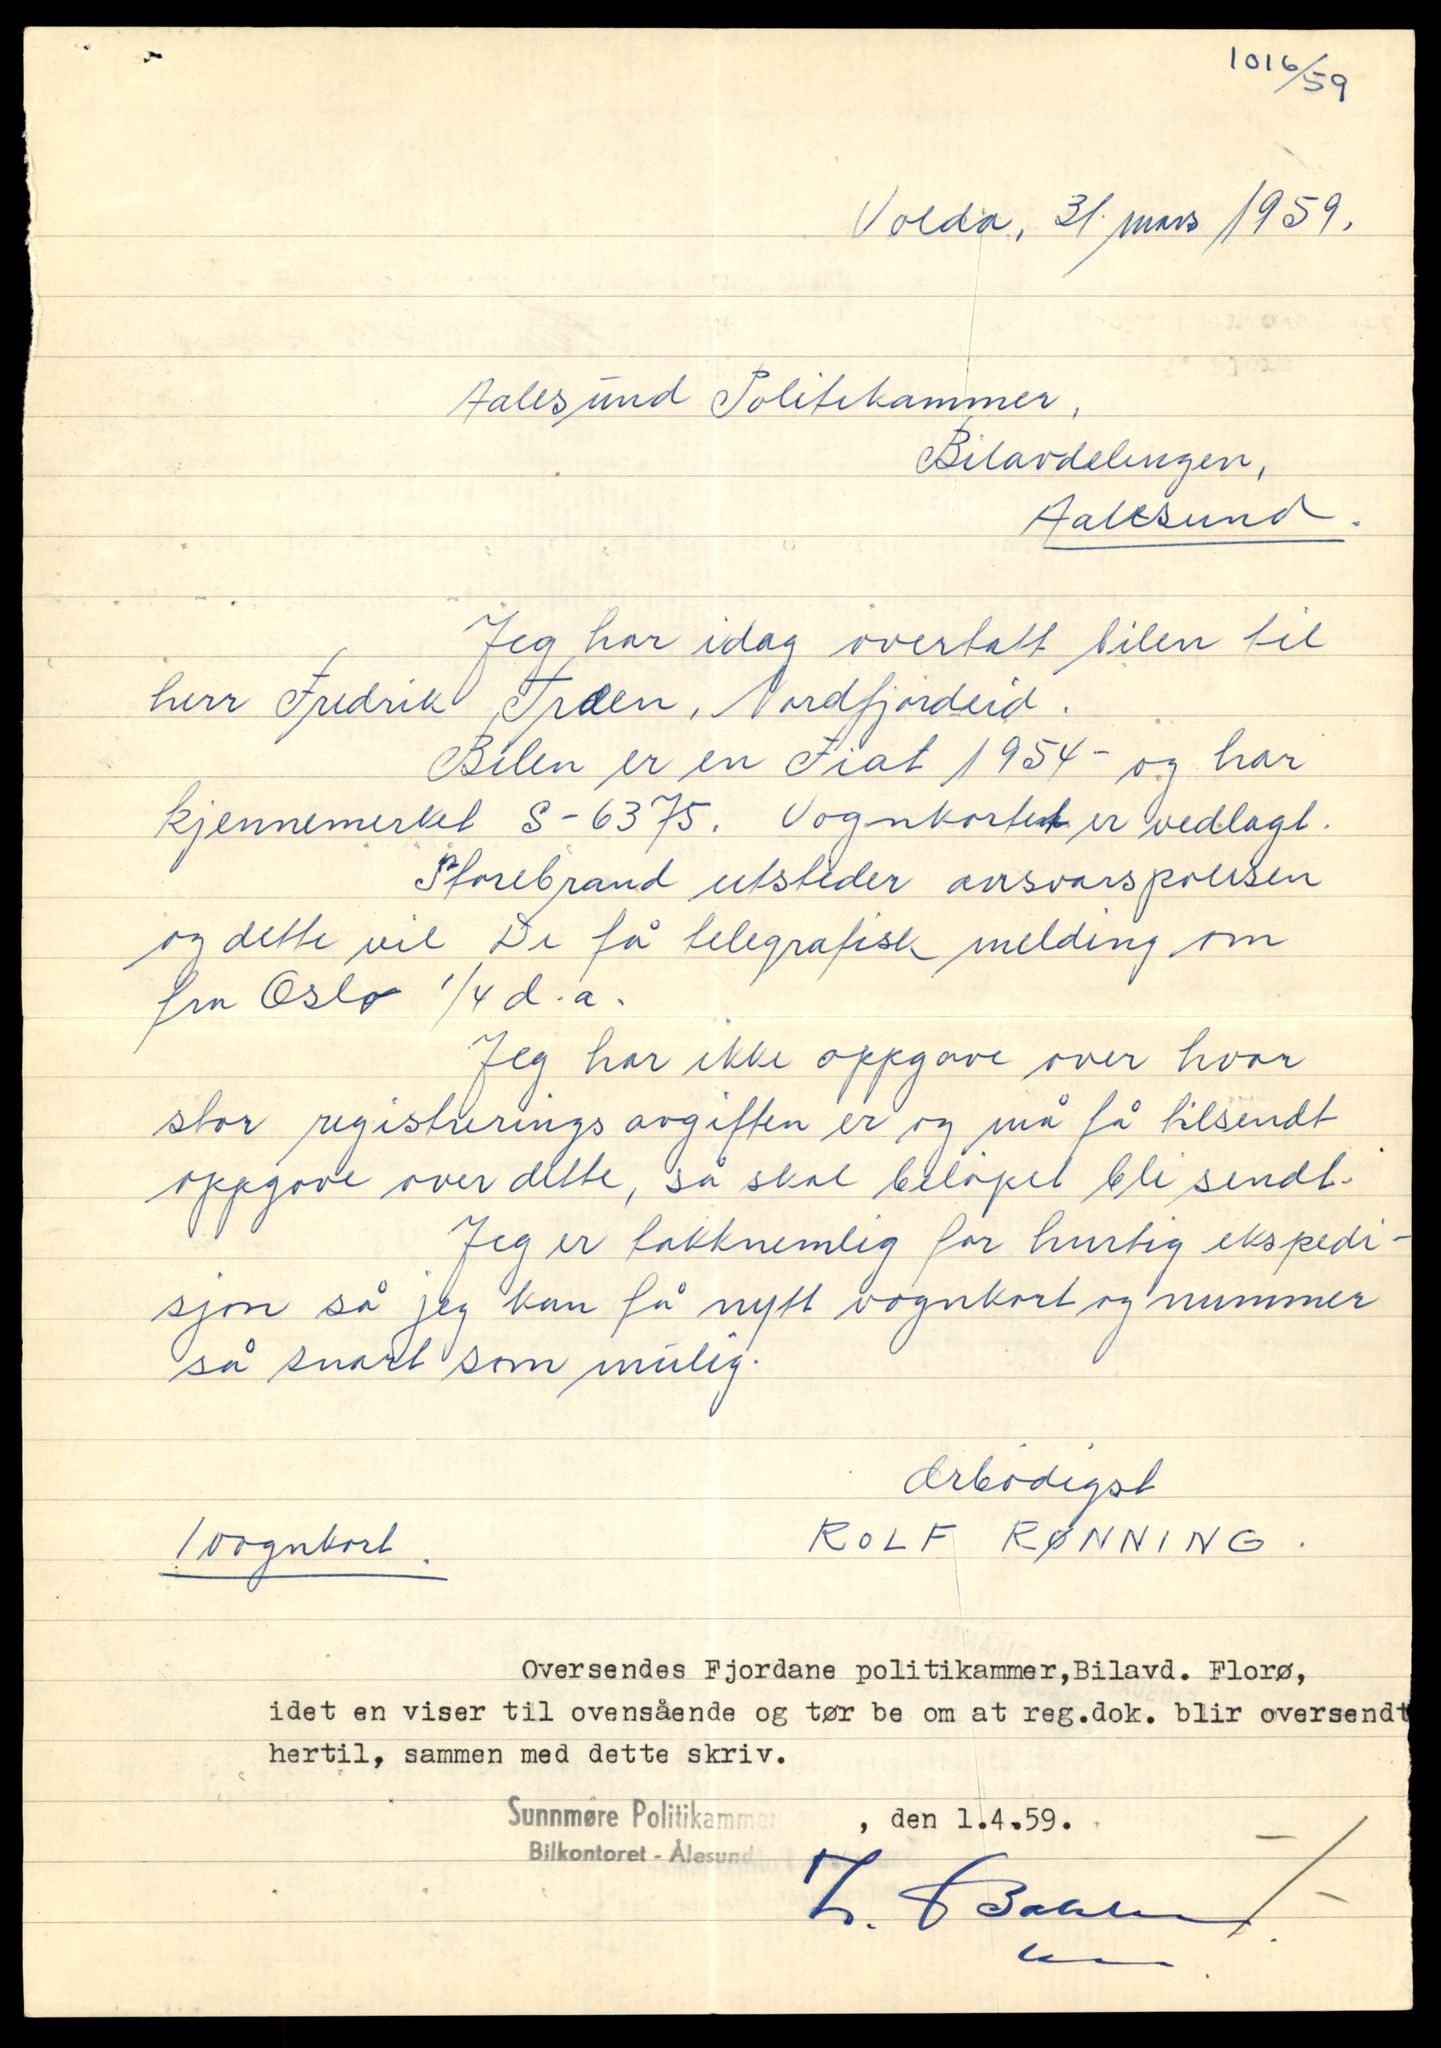 1016/59
Volda, 31. mars 1959.
Aalesund Politikammer,
Bilavdelingen,
Aalesund.
Jeg har idag overtatt bilen til
herr Fredrik Træen, Nordfjordeid.
Bilen er en Fiat 1954- og har
kjennemerket S-6375. Vognkortet er vedlagt.
Storebrand utsteder ansvarspolisen
og dette vil De få telegrafisk melding om
fra Oslo 1/4 d.a.
Jeg har ikke oppgave over hvor
stor registreringsavgiften er og må få tilsendt
oppgave over dette, så skal beløpet bli sendt.
Jeg er takknemlig for hurtig ekspedi-
sjon så jeg kan få nytt vognkort og nummer
så snart som mulig.
Ærbødigst
ROLF RØNNING.
1 vognkort.
Oversendes Fjordane politikammer,Bilavd. Florø,
idet en viser til ovensående og tør be om at reg.dok. blir oversendt
hertil, sammen med dette skriv.
Sunnmøre Politikammer, den 1.4.59.
Bilkontoret - Ålesund